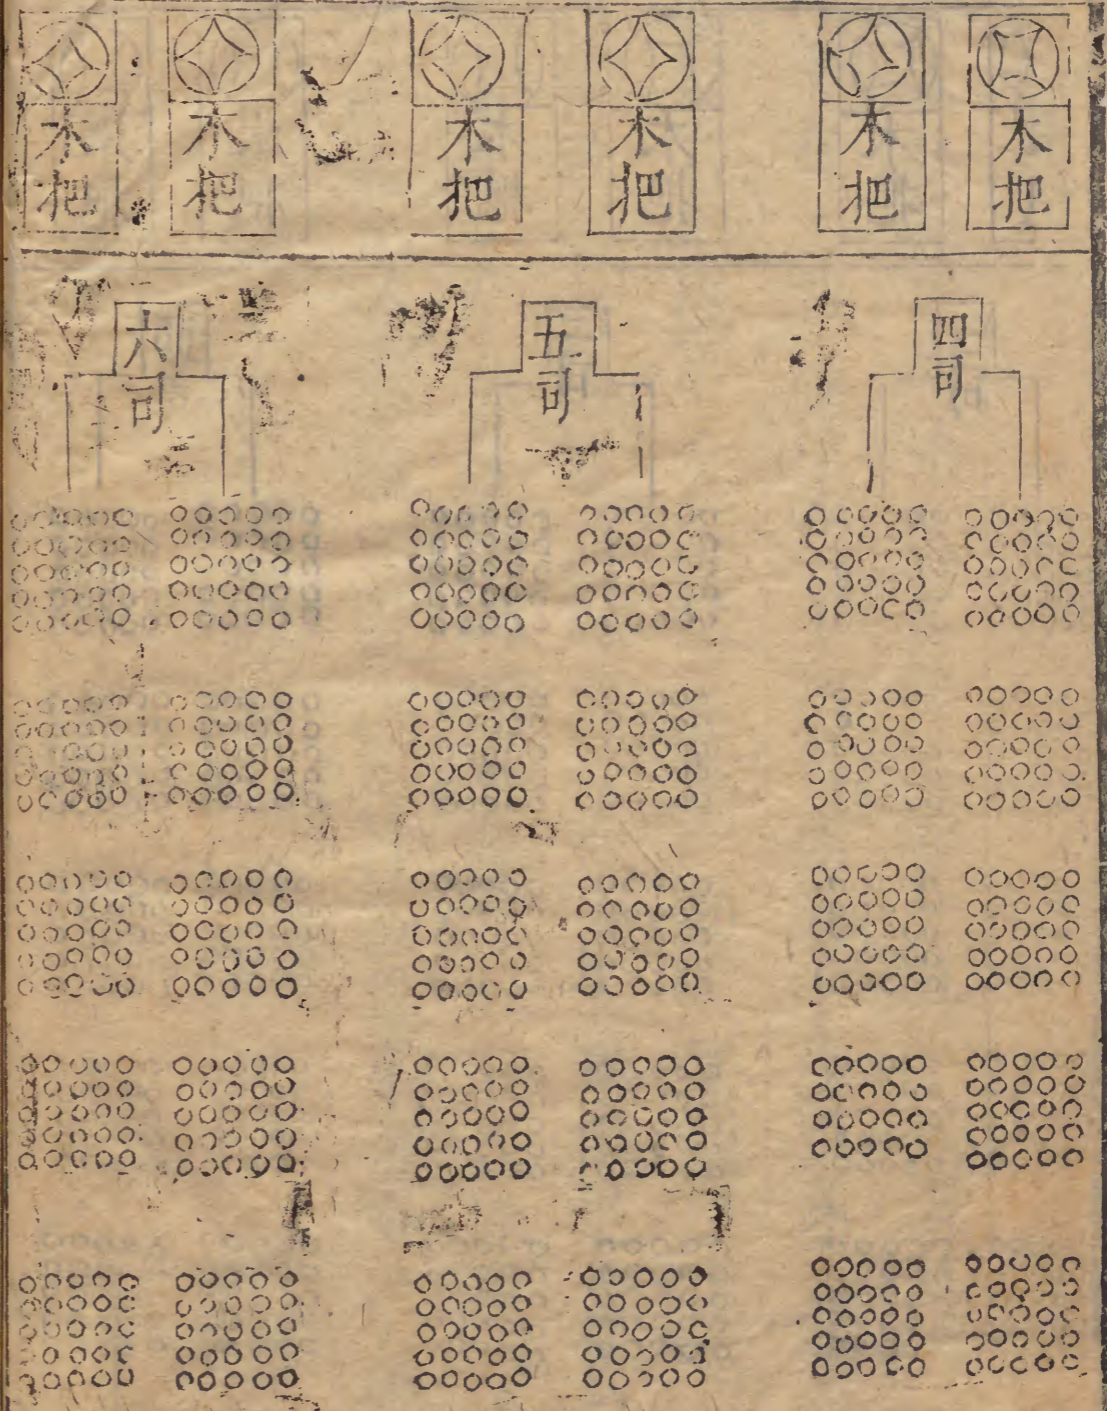 木把
木把
木把
木把
木把
木把
四司
五司
六司